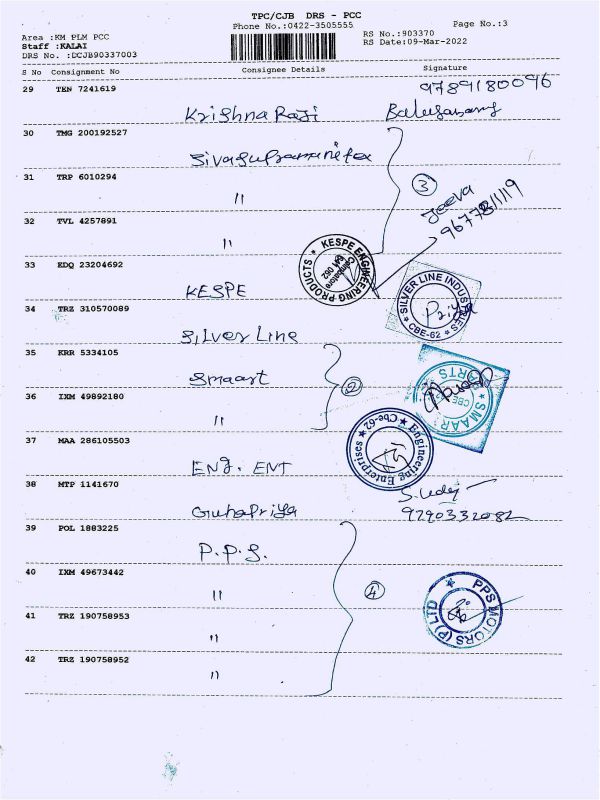 TPC/CJB DRS - PCC
Phone No.:0422-3505555
Page No.:3
Area :KM PLM PCC
RS No.:903370
Staff :KALAI
RS Date:09-Mar-2022
DRS No. :DCJB90337003
S No Consignment No Consignee Details Signature
29 TEN 7241619
9789180096
Krishna Raji
30 TMG 200192527
31 TRP 6010294
"
3
Jeeva
32 TVL 4257891
"
KESPE ENGINEERING PRODUCTS
33 EDQ 23204692
KESPE
SILVER LINE INDUSTRIES
CBE-62
Priya
34 TRZ 310570089
Silver Line
35 KRR 5334105
Smaart
2
36 IXM 49892180
"
Engineering Enterprises
Cbe-62
37 MAA 286105503
Eng. ENT
38 MTP 1141670
Guhapriya
S. Uday
39 POL 1883225
P.P.S.
40 IXM 49673442
"
4
PPS MOTORS (P) LTD
41 TRZ 190758953
"
42 TRZ 190758952
"